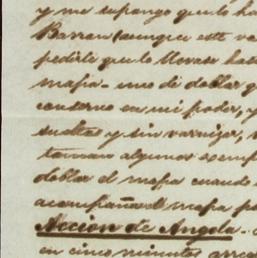 y me supongo que lo ha
Barran (aunque este va
pedirle que lo llevase has
mapa - uno di doblar q
conserno en mi poder, y
sueltas y sin varnizar,
tomar algunos exemp
doblar el mapa cuando
acompañar el mapa po
Accion de Angola -
en cinco minutos arreg